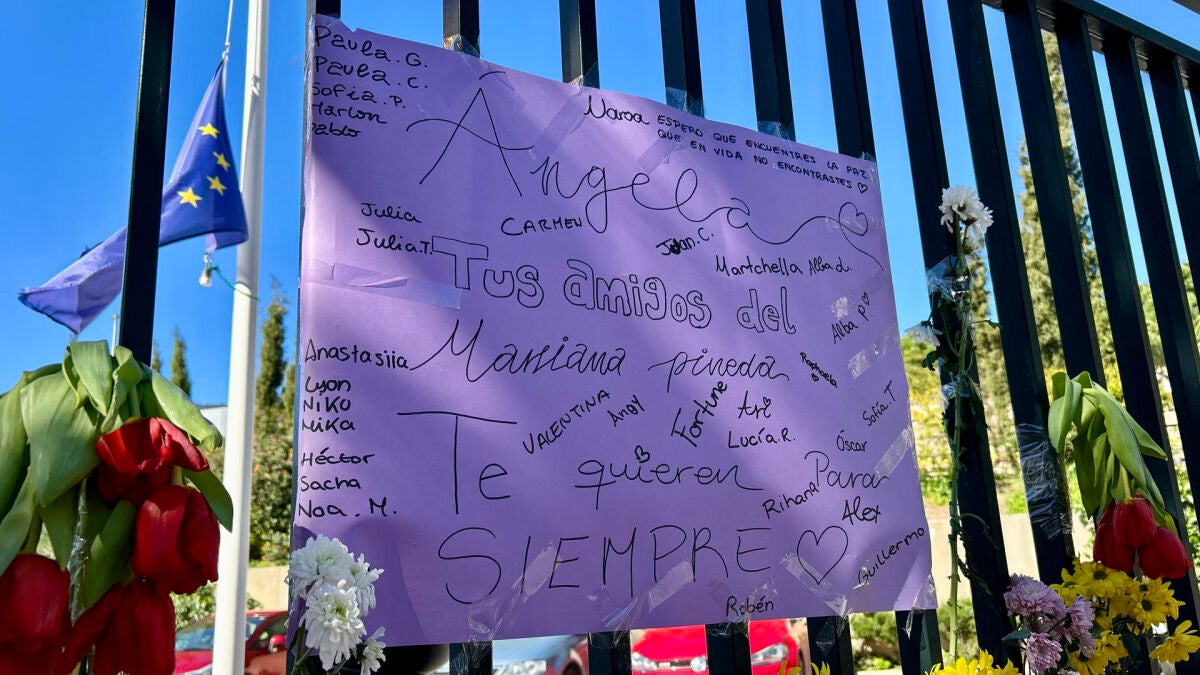 Paula. G.
Paula. C.
Sofia. P.
Marlon
Pablo
Naroa ESPERO QUE ENCUENTRES LA PAZ
QUE EN VIDA NO ENCONTRASTES ♡
Angela ♡
Julia
Julia.T.
CARMEN
Juan. C.
Martchella
Alba d.
Tus amigos del
Alba P.
Anastasiia
Mariana pineda
Raphaela
Lyon
Niko
Mika
VALENTINA
Angy
Fortune
Ari
Lucía.R.
Sofía.T
Óscar
Héctor
Sacha
Noa. M.
Te quieren Para
Rihana
Alex
SIEMPRE ♡
Guillermo
Robén